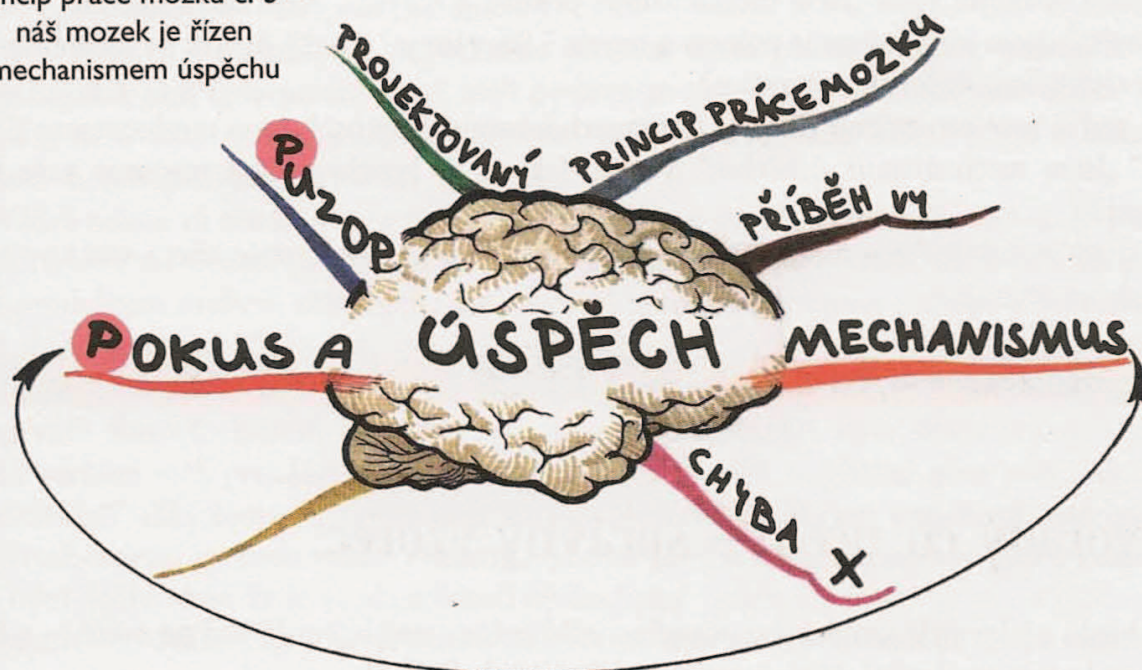 náš mozek je řízen
mechanismem úspěchu
PROJEKTOVANÝ
PRINCIP PRÁCE MOZKU
PUZOP
PŘÍBĚH VY
POKUS A
ÚSPĚCH
MECHANISMUS
CHYBA X